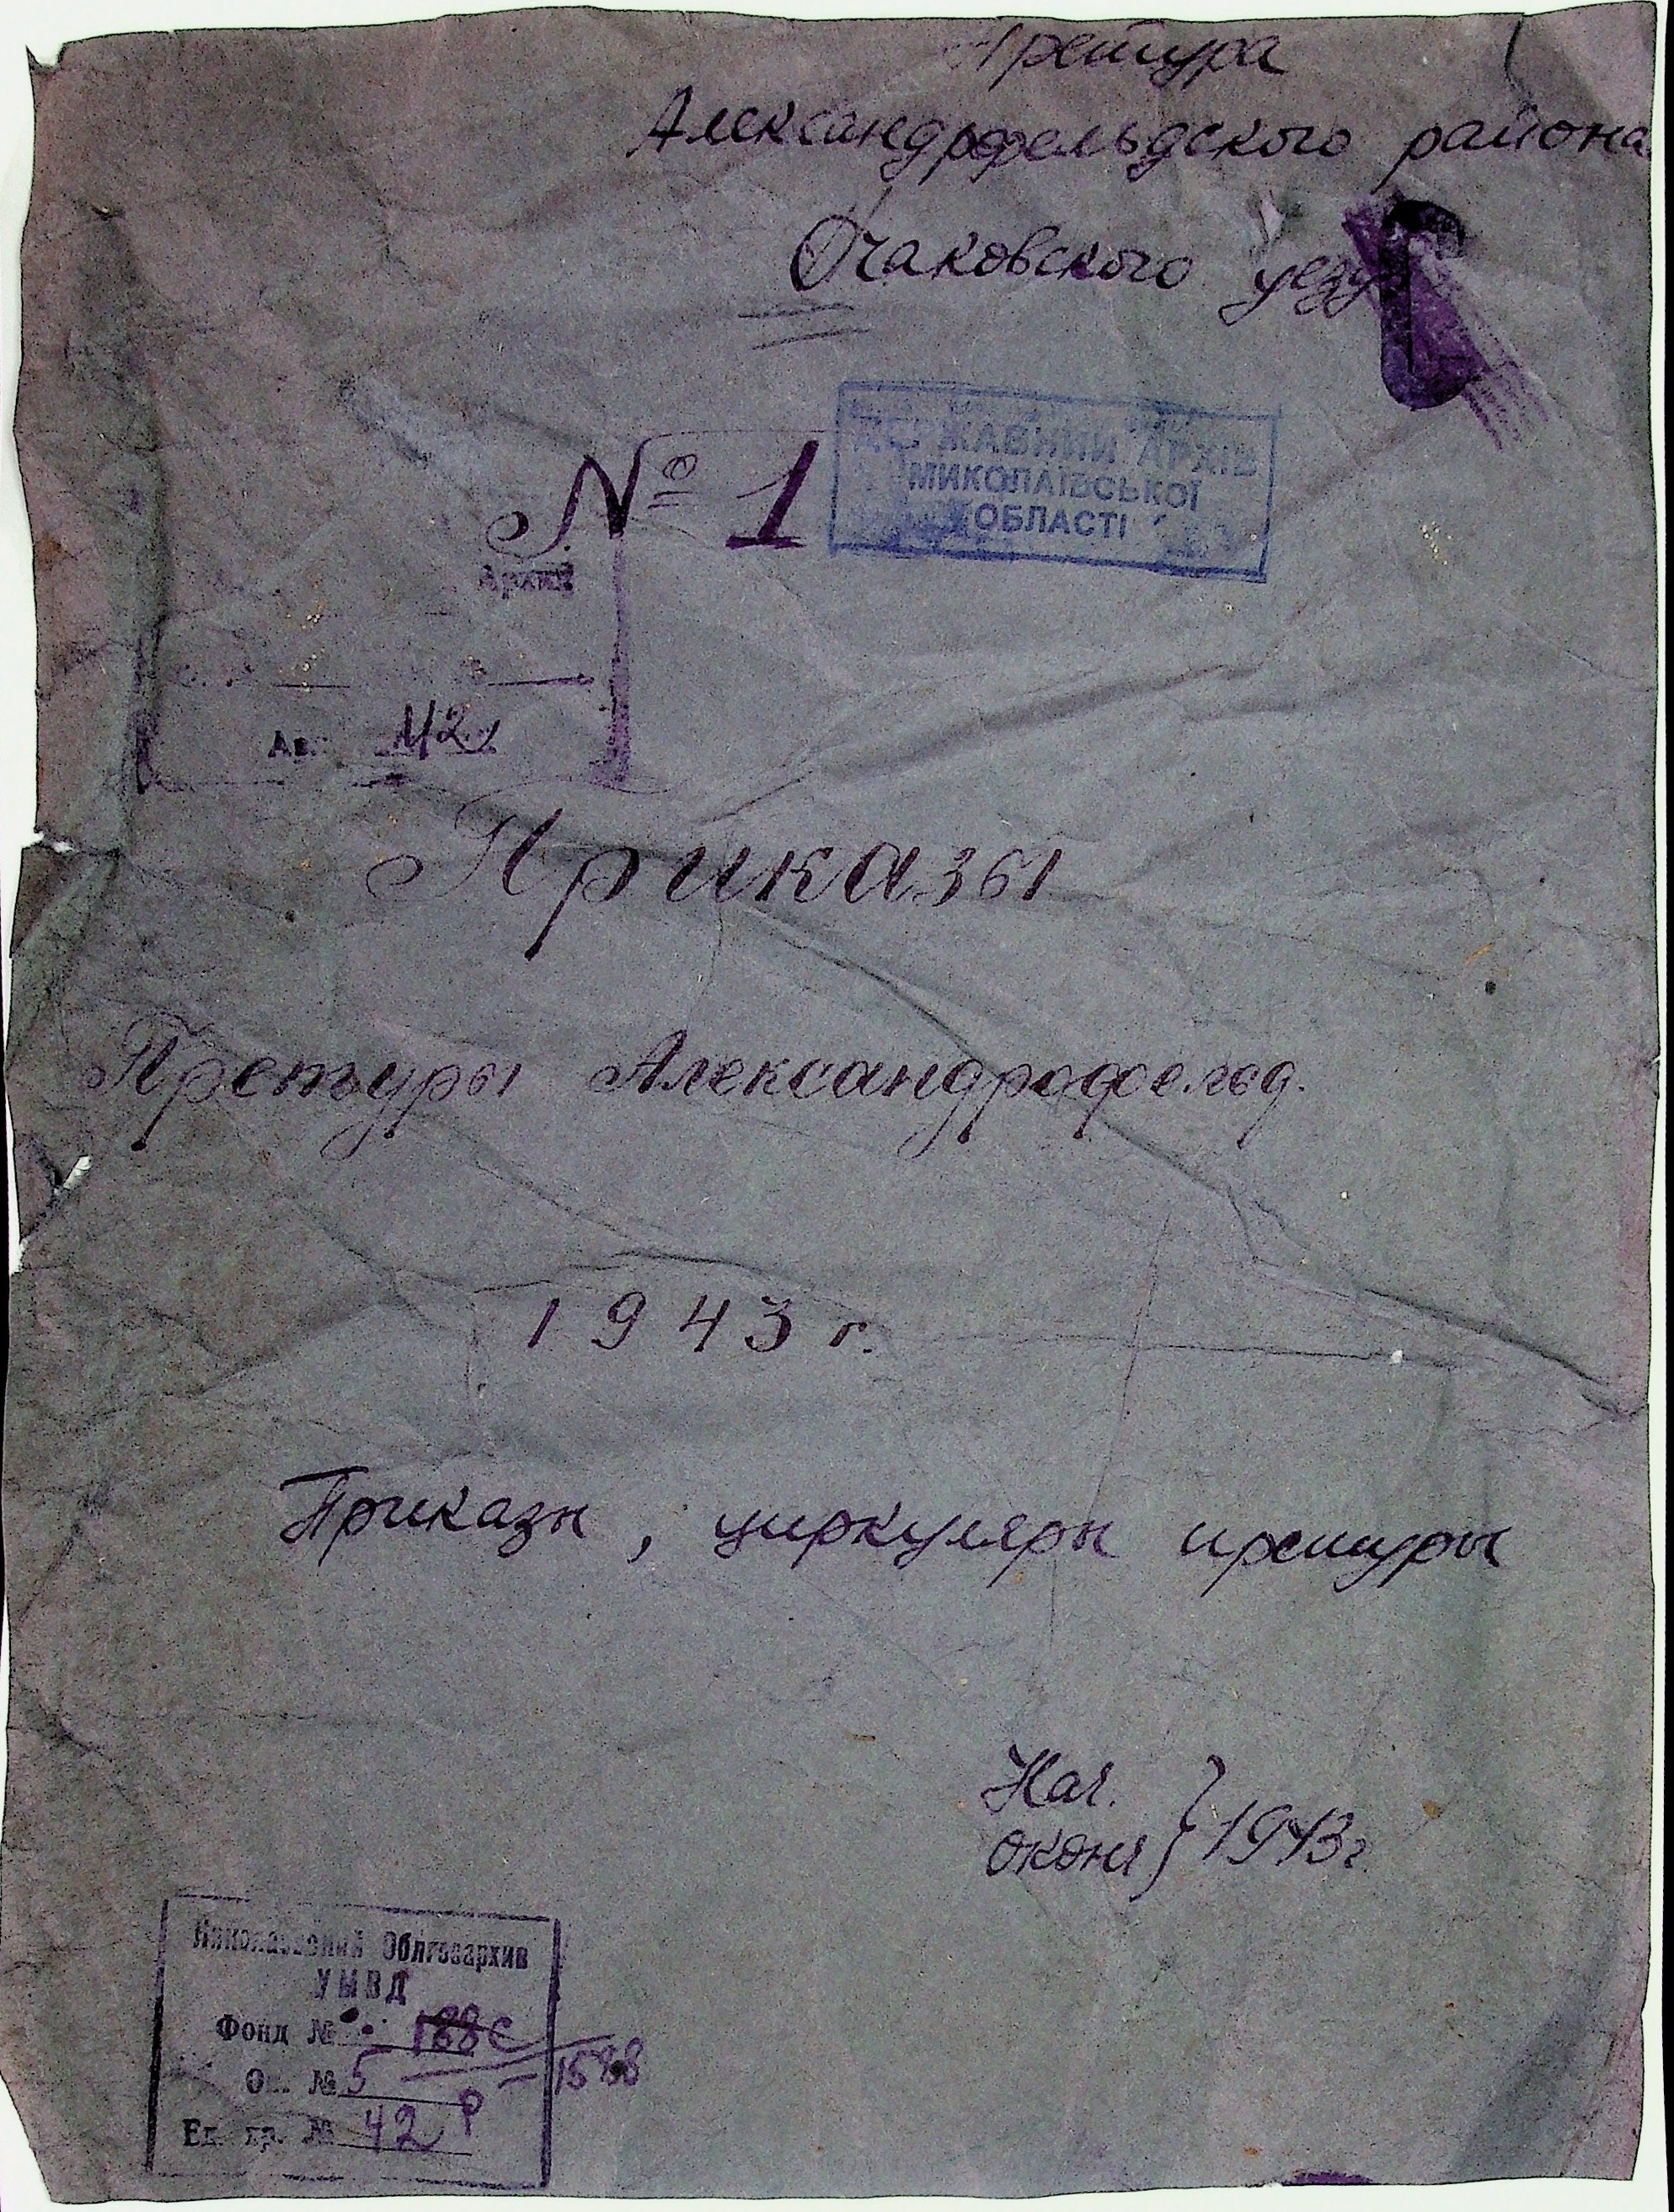 Претура
Александрофельдского района
Очаковского уезд
№ 1
ДЕРЖАВНИЙ АРХІВ
МИКОЛАЇВСЬКОЇ
ОБЛАСТІ
Архив
42
Приказы
Претуры Александрофельд.
1943 г.
Приказы, циркуляры претуры
Нач.
оконч } 1943 г.
Николаевский Облгосархив
УМВД
Фонд № 188с
Оп. № 5 Р-1588
Ед. хр. № 42